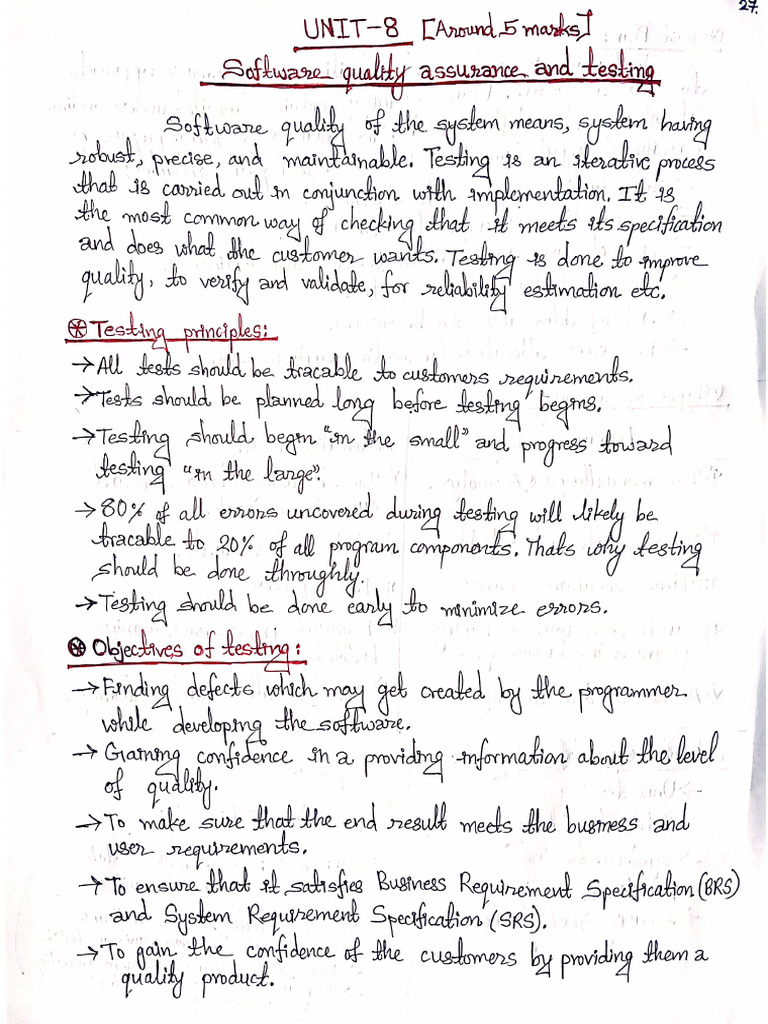 27.
UNIT-8 [Around 5 marks]
Software quality assurance and testing
Software quality of the system means, system having
robust, precise, and maintainable. Testing is an iterative process
that is carried out in conjunction with implementation. It is
the most common way of checking that it meets its specification
and does what the customer wants. Testing is done to improve
quality, to verify and validate, for reliability estimation etc.
⊛ Testing principles:
→ All tests should be tracable to customers requirements.
→ Tests should be planned long before testing begins.
→ Testing should begin "in the small" and progress toward
testing "in the large".
→ 80% of all errors uncovered during testing will likely be
tracable to 20% of all program components. Thats why testing
should be done throughly.
→ Testing should be done early to minimize errors.
⊛ Objectives of testing:
→ Finding defects which may get created by the programmer
while developing the software.
→ Gaining confidence in a providing information about the level
of quality.
→ To make sure that the end result meets the business and
user requirements.
→ To ensure that it satisfies Business Requirement Specification (BRS)
and System Requirement Specification (SRS).
→ To gain the confidence of the customers by providing them a
quality product.